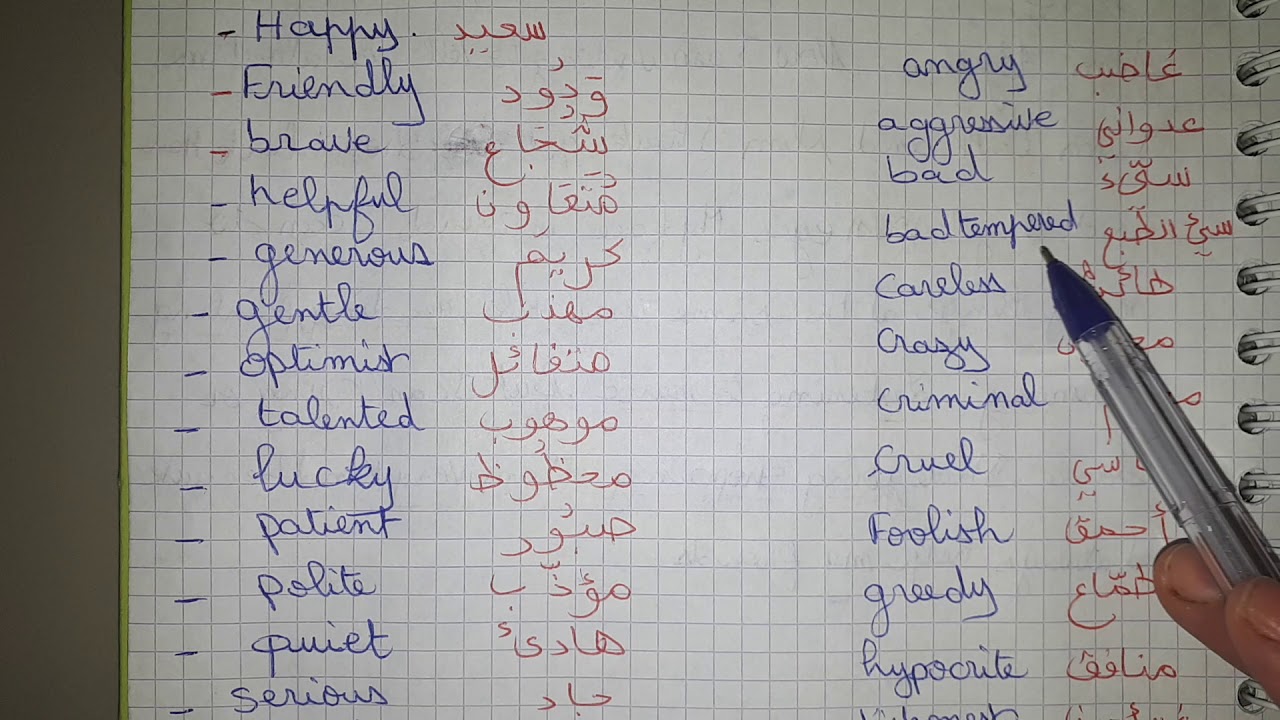 - Happy. سعيد
- Friendly وَدُود
- brave شُجَاع
- helpful مُتَعَاوِن
- generous كريم
- gentle مهذب
- optimist متفائل
- talented موهوب
- lucky محظوظ
- patient صبُور
- polite مؤدّب
- quiet هادئ
- serious جاد
angry غاضب
aggressive عدوانى
bad سيّء
badtempered سيئ الطّبع
careless
crazy
criminal
cruel
Foolish أحمق
greedy طمّاع
hypocrite منافق